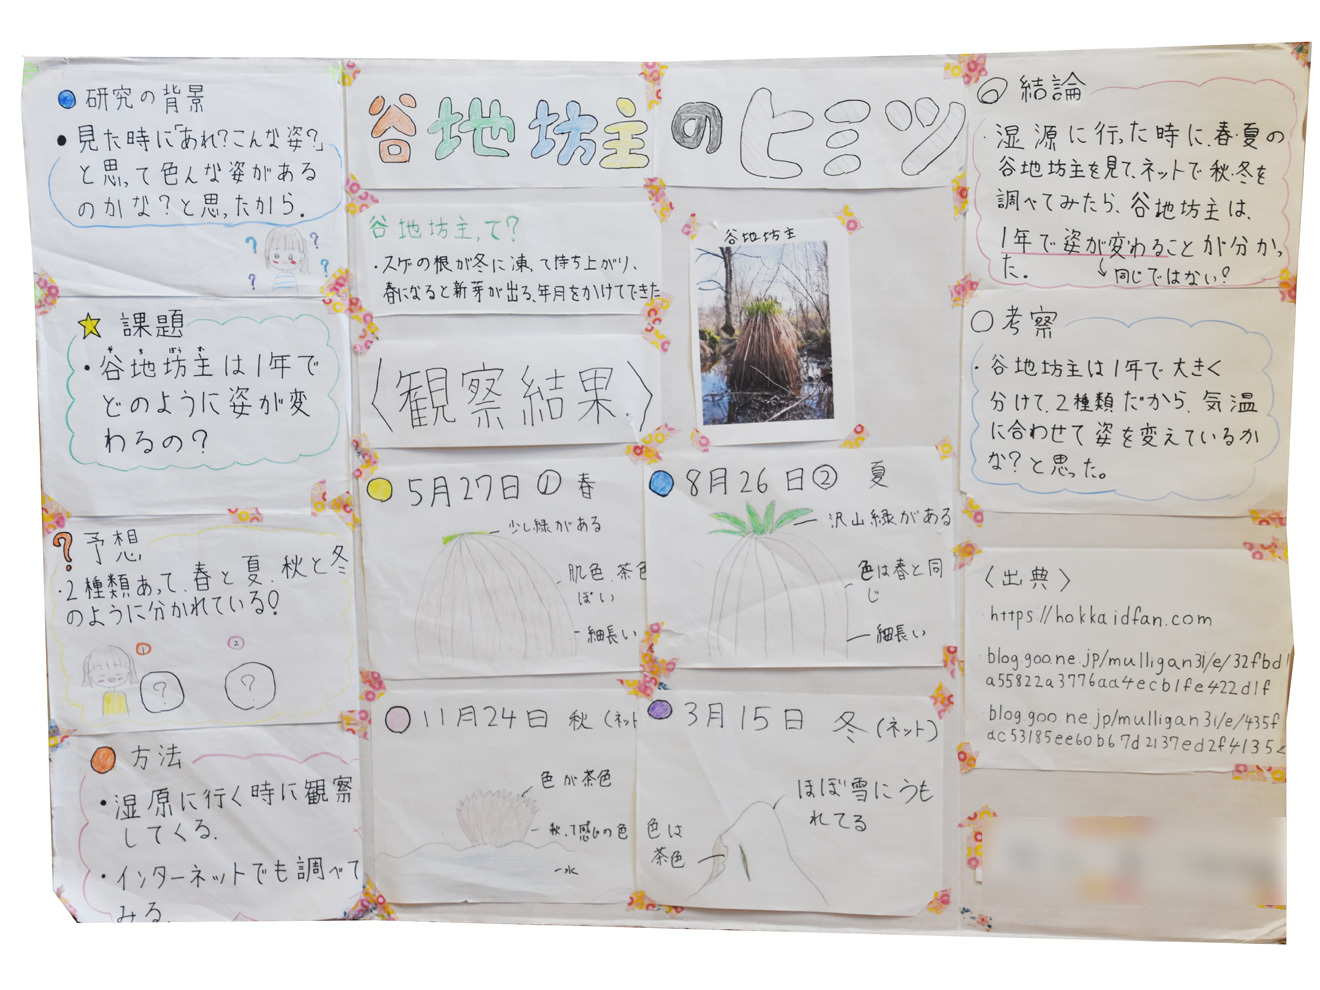 谷地坊主のヒミツ
研究の背景
・見た時に「あれ?こんな姿?」
と思って色んな姿がある
のかな?と思ったから.
? ? ? ?
課題
・谷地坊主は1年で
やちぼうず
どのように姿が変
わるの?
?予想
・2種類あって、春と夏、秋と冬
のように分かれている!
① ②
? ?
方法
・湿原に行く時に観察
してくる.
・インターネットでも調べて
みる.
谷地坊主って?
・スゲの根が冬に凍って持ち上がり、
春になると新芽が出る、年月をかけてできた
谷地坊主
〈観察結果.〉
5月27日① 春
少し緑がある
肌色、茶色
ぽい
細長い
8月26日② 夏
沢山緑がある
色は春と同
じ
細長い
11月24日 秋 (ネット
色が茶色
秋って感じの色
水
3月15日 冬(ネット)
ほぼ雪にうも
れてる
色は
茶色
結論
・湿源に行った時に、春・夏の
谷地坊主を見て、ネットで秋・冬を
調べてみたら、谷地坊主は、
1年で姿が変わることが分かっ
た.
同じではない?
考察
・谷地坊主は1年で大きく
分けて、2種類だから、気温
に合わせて姿を変えているか
な?と思った。
〈出典〉
・https://hokkaidfan.com
・blog.goo.ne.jp/mulligan3i/e/32fbd
a55822a3776aa4ecb1fe422d1f
・blog.goo.ne.jp/mulligan3i/e/435f
ac53185ee60b67d2137ed2f4135